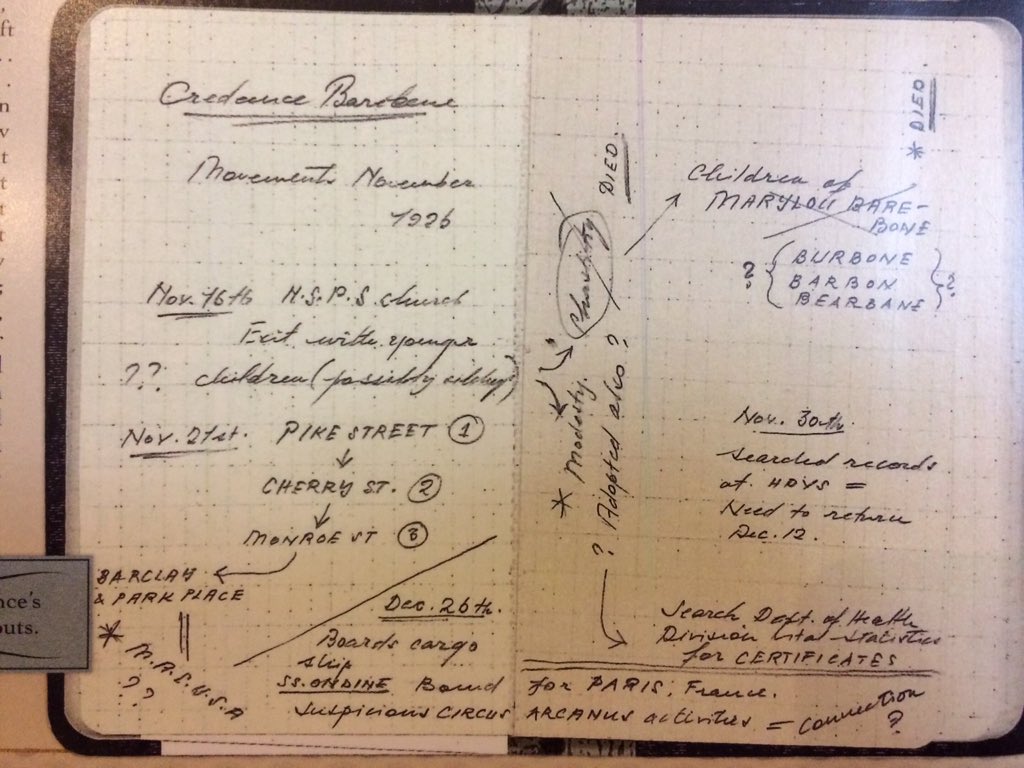 Credence Barebone
Movements November
1926
Nov. 16th N.S.P.S. church
Exit with younger
?? children (possibly
Nov. 21st. PIKE STREET 1
CHERRY ST. 2
MONROE ST 3
BARCLAY
& PARK PLACE
* M.A.C.U.S.A
??
Dec. 26th.
Boards cargo
ship
SS. ONDINE Bound
Suspicious CIRCUS
DIED
Chastity
* Modesty.
? Adopted also?
* DIED
Children of
MARYLOU BARE-
BONE
? { BURBONE
BARBON
BEARBANE } ?
Nov. 30th.
Searched records
at HDYS =
Need to return
Dec. 12.
Search Dept. of Health
Division Vital-Statistics
for CERTIFICATES
for PARIS; France.
ARCANUS activities = connection
?
nce's
outs.
ft